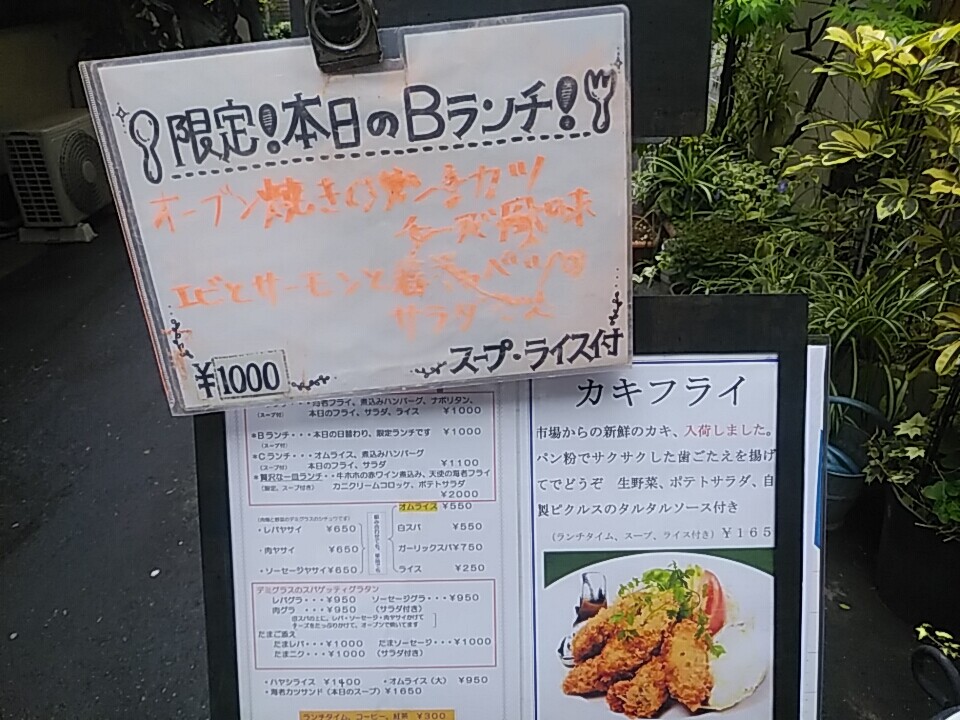 限定!本日のBランチ!
オーブン焼き
チーズ風味
エビとサーモンと春キャベツの
サラダ
スープ・ライス付
¥1000
本日のフライ、サラダ、ライス ¥1000
(スープ付)
*Bランチ・・・本日の日替わり、限定ランチです ¥1000
(スープ付)
*Cランチ・・・オムライス、煮込みハンバーグ
(スープ付) 本日のフライ、サラダ ¥1100
*贅沢な一皿ランチ・・牛ホホの赤ワイン煮込み、天使の海老フライ
(限定、スープ付き) カニクリームコロッケ、ポテトサラダ
¥2000
・レバヤサイ ¥650
・肉ヤサイ ¥650
・ソーセージヤサイ¥650
オムライス ¥550
白スパ ¥550
ガーリックスパ¥750
ライス ¥250
デミグラスのスパゲッティグラタン
レバグラ・・・¥950 ソーセージグラ・・¥950
肉グラ ・・・¥950 (サラダ付き)
白スパの上に、レバ・ソーセージ・肉ヤサイかけて
チーズをたっぷりかけて、オーブンで焼いてます
たまご添え
たまレバ・・・¥1000 たまソーセージ・・¥1000
たまニク・・・¥1000 (サラダ付き)
・ハヤシライス ¥1400 ・オムライス(大) ¥950
・海老カツサンド(本日のスープ)¥1650
ランチタイム、コーヒー、紅茶 ¥300
カキフライ
市場からの新鮮のカキ、入荷しました。
パン粉でサクサクした歯ごたえを揚げ
てでどうぞ 生野菜、ポテトサラダ、自
製ピクルスのタルタルソース付き
(ランチタイム、スープ、ライス付き)¥165